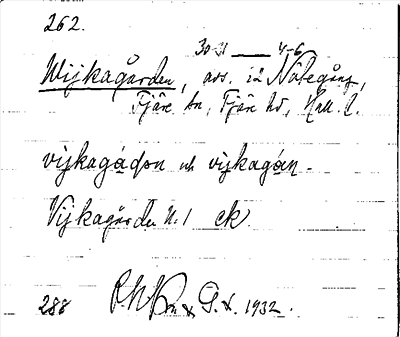 262.
30-31 — 4-6
Wijkagården, avs. i 2 Nötegång,
Fjäre sn, Fjäre hd, Hall. l.
vijkagáɖon och vijkagán.
Vijkagården N. 1 ek
288 G. L. 1932.